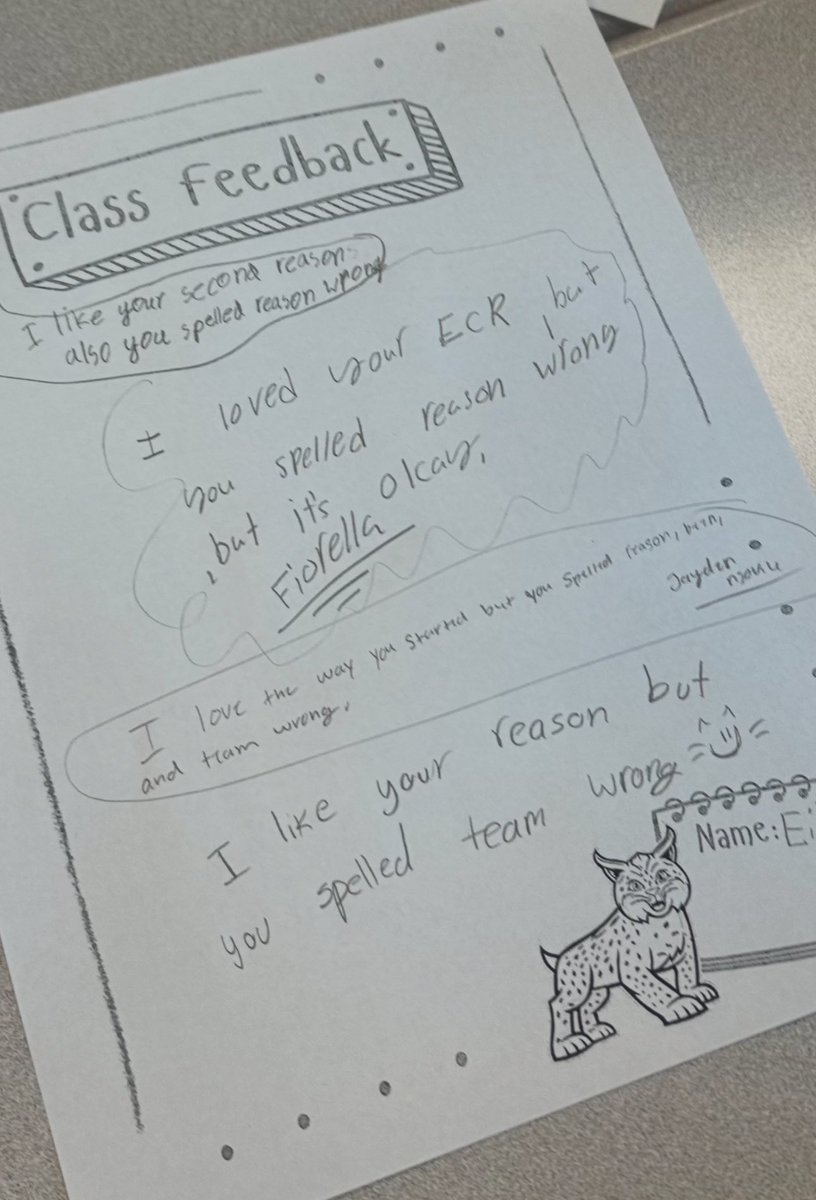 Class Feedback
I like your second reason
also you spelled reason wrong
I loved your ECR, but
you spelled reason wrong
, but it's okay.
Fiorella
I love the way you started but you spelled reason, been,
and team wrong.
Jayden
I like your reason but
you spelled team wrong
Name: Ei